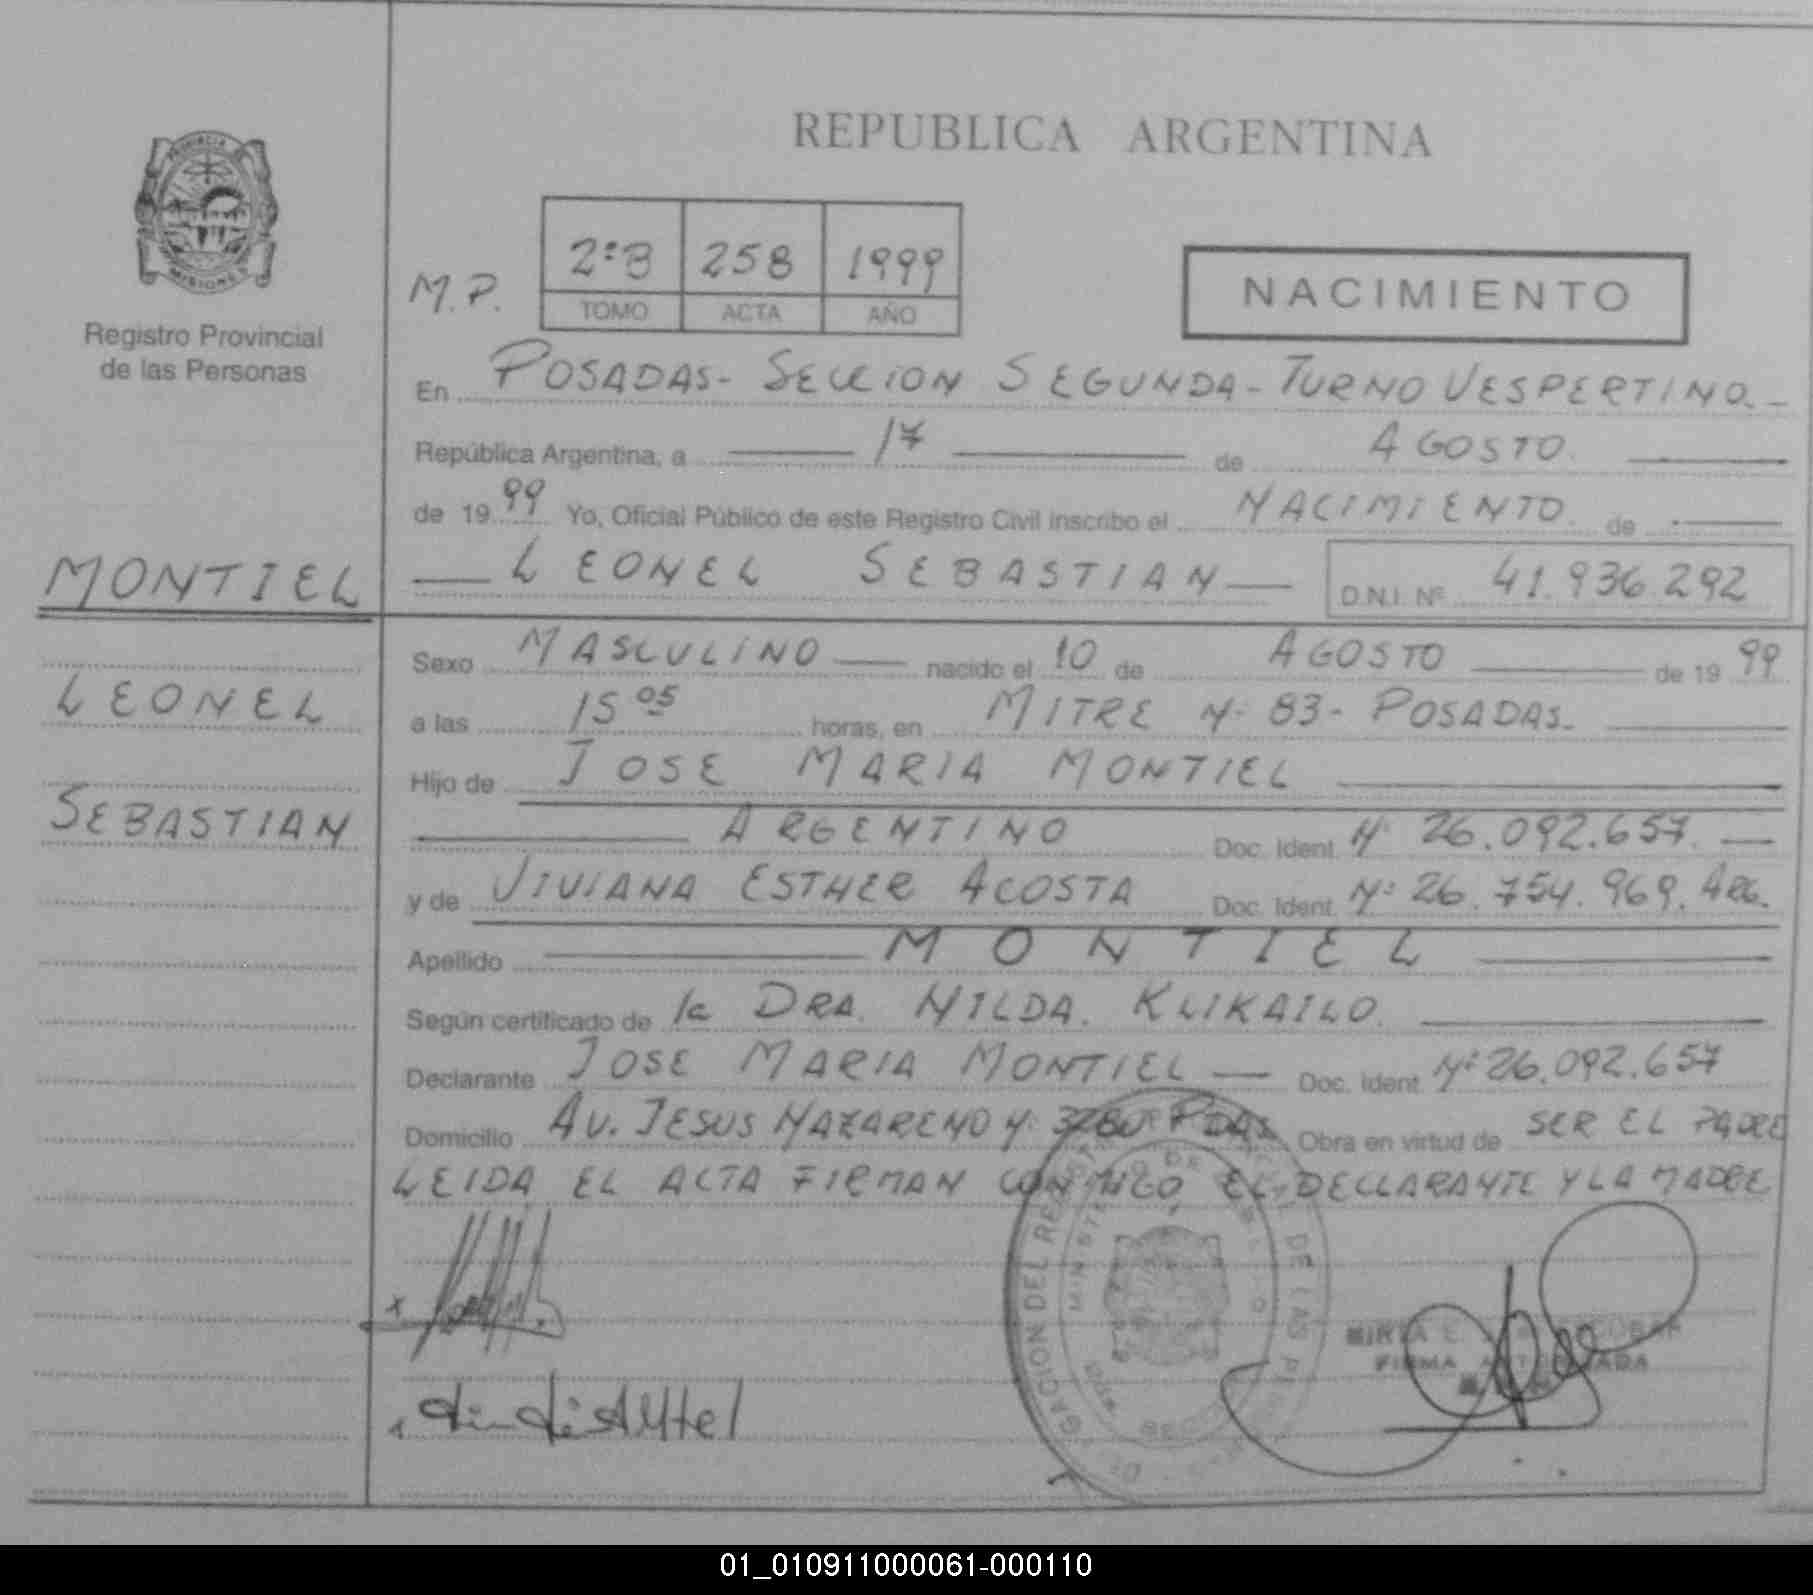 REPUBLICA ARGENTINA
PROVINCIA DE
MISIONES
Registro Provincial
de las Personas
M.P.
2ºB 258 1999
TOMO ACTA AÑO
NACIMIENTO
En POSADAS- SECCION SEGUNDA- TURNO VESPERTINO.-
República Argentina, a 17 de AGOSTO.
de 1999 Yo, Oficial Público de este Registro Civil inscribo el NACIMIENTO. de
LEONEL SEBASTIAN D.N.I. Nº 41.936.292
MONTIEL
LEONEL
SEBASTIAN
Sexo MASCULINO nacido el 10 de AGOSTO de 1999
a las 15 05 horas, en MITRE Nº 83- POSADAS.
Hijo de JOSE MARIA MONTIEL
ARGENTINO Doc. Ident. Nº 26.092.657.
y de VIVIANA ESTHER ACOSTA Doc. Ident. Nº 26.754.969. ARG.
Apellido MONTIEL
Según certificado de la DRA. NILDA. KLIKAILO.
Declarante JOSE MARIA MONTIEL Doc. Ident. Nº 26.092.657
Domicilio AV. JESUS NAZARENO Nº PDAS Obra en virtud de SER EL PADRE
LEIDA EL ACTA FIRMAN CONMIGO EL DECLARANTE Y LA MADRE
DELEGACION DEL REGISTRO DE LAS
MINISTERIO DE
FIRMA AUTORIZADA
01_010911000061-000110